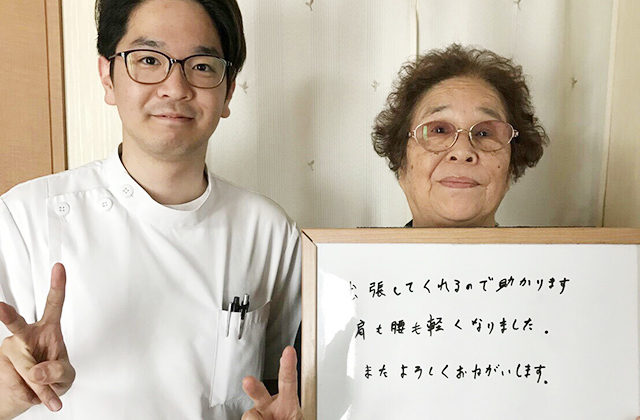 張してくれるので助かります
肩も腰も軽くなりました。
またよろしくおねがいします。